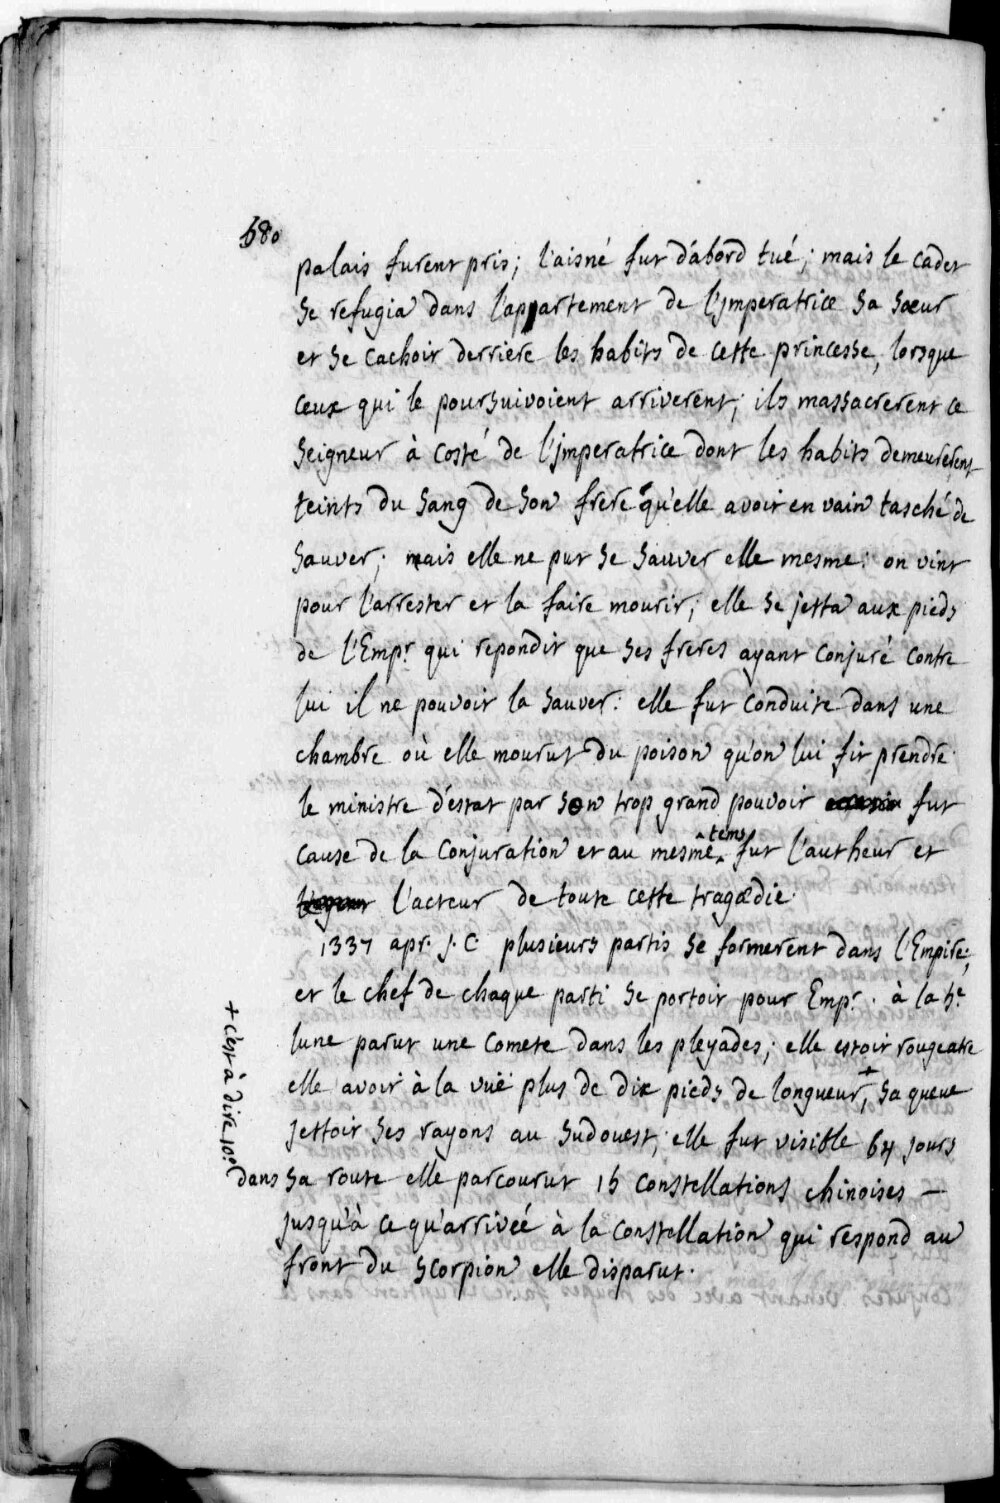 680
palais furent pris; l'aisné fut d'abord tué; mais le cadet
se refugia dans l'appartement de l'jmperatrice sa sœur
et se cachoit derriere les habits de cette princesse, lorsque
ceux qui le poursuivoient arriverent; ils massacrerent ce
seigneur à costé de l'jmperatrice dont les habits demeurerent
teints du sang de son frere qu'elle avoit en vain tasché de
sauver; mais elle ne put se sauver elle mesme: on vint
pour l'arrester et la faire mourir; elle se jetta aux pieds
de l'Empr. qui repondit que ses freres ayant conjuré contre
lui il ne pouvoit la sauver: elle fut conduite dans une
chambre où elle mourut du poison qu'on lui fit prendre.
le ministre d'estat par son trop grand pouvoir fut
cause de la conjuration et au mesme tems fut l'autheur et
l'acteur de toute cette tragœdie.
1337 apr. J. C. plusieurs partis se formerent dans l'Empire;
et le chef de chaque parti se portoit pour Empr. à la 5e
lune parut une comete dans les pleyades; elle estoit rougeatre
elle avoit à la vuë plus de dix pieds de longueur,+ sa queue
jettoit ses rayons au sudouest; elle fut visible 64 jours
dans sa route elle parcourut 15 constellations chinoises —
jusqu'à ce qu'arriveé à la constellation qui respond au
front du scorpion elle disparut.
+ c'est à dire 10°